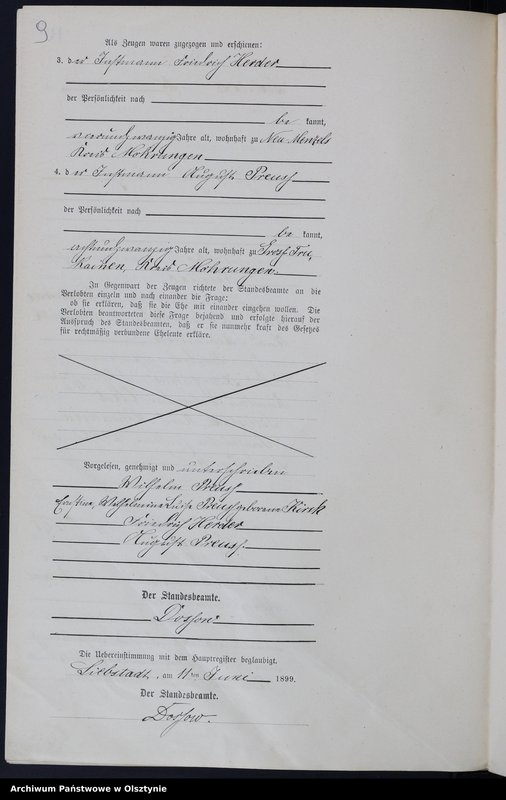 9
Als Zeugen waren zugezogen und erschienen:
3. der Instmann Friedrich Herder
der Persönlichkeit nach
be kannt,
Jahre alt, wohnhaft zu Neu Menzels
Kreis Mohrungen
4. der Instmann August Preuss
der Persönlichkeit nach
be kannt,
achtundzwanzig Jahre alt, wohnhaft zu Gross
Kreis Mohrungen
In Gegenwart der Zeugen richtete der Standesbeamte an die
Verlobten einzeln und nach einander die Frage:
ob sie erklären, daß sie die Ehe mit einander eingehen wollen. Die
Verlobten beantworteten diese Frage bejahend und erfolgte hierauf der
Ausspruch des Standesbeamten, daß er sie nunmehr kraft des Gesetzes
für rechtmäßig verbundene Eheleute erkläre.
Vorgelesen, genehmigt und unterschrieben
Wilhelm Preuss
Wilhelmine Luise Preuss geborene
Friedrich Herder
August Preuss
Der Standesbeamte.
Die Uebereinstimmung mit dem Hauptregister beglaubigt.
Liebstadt, am 11ten Juni 1899.
Der Standesbeamte.
Archiwum Państwowe w Olsztynie